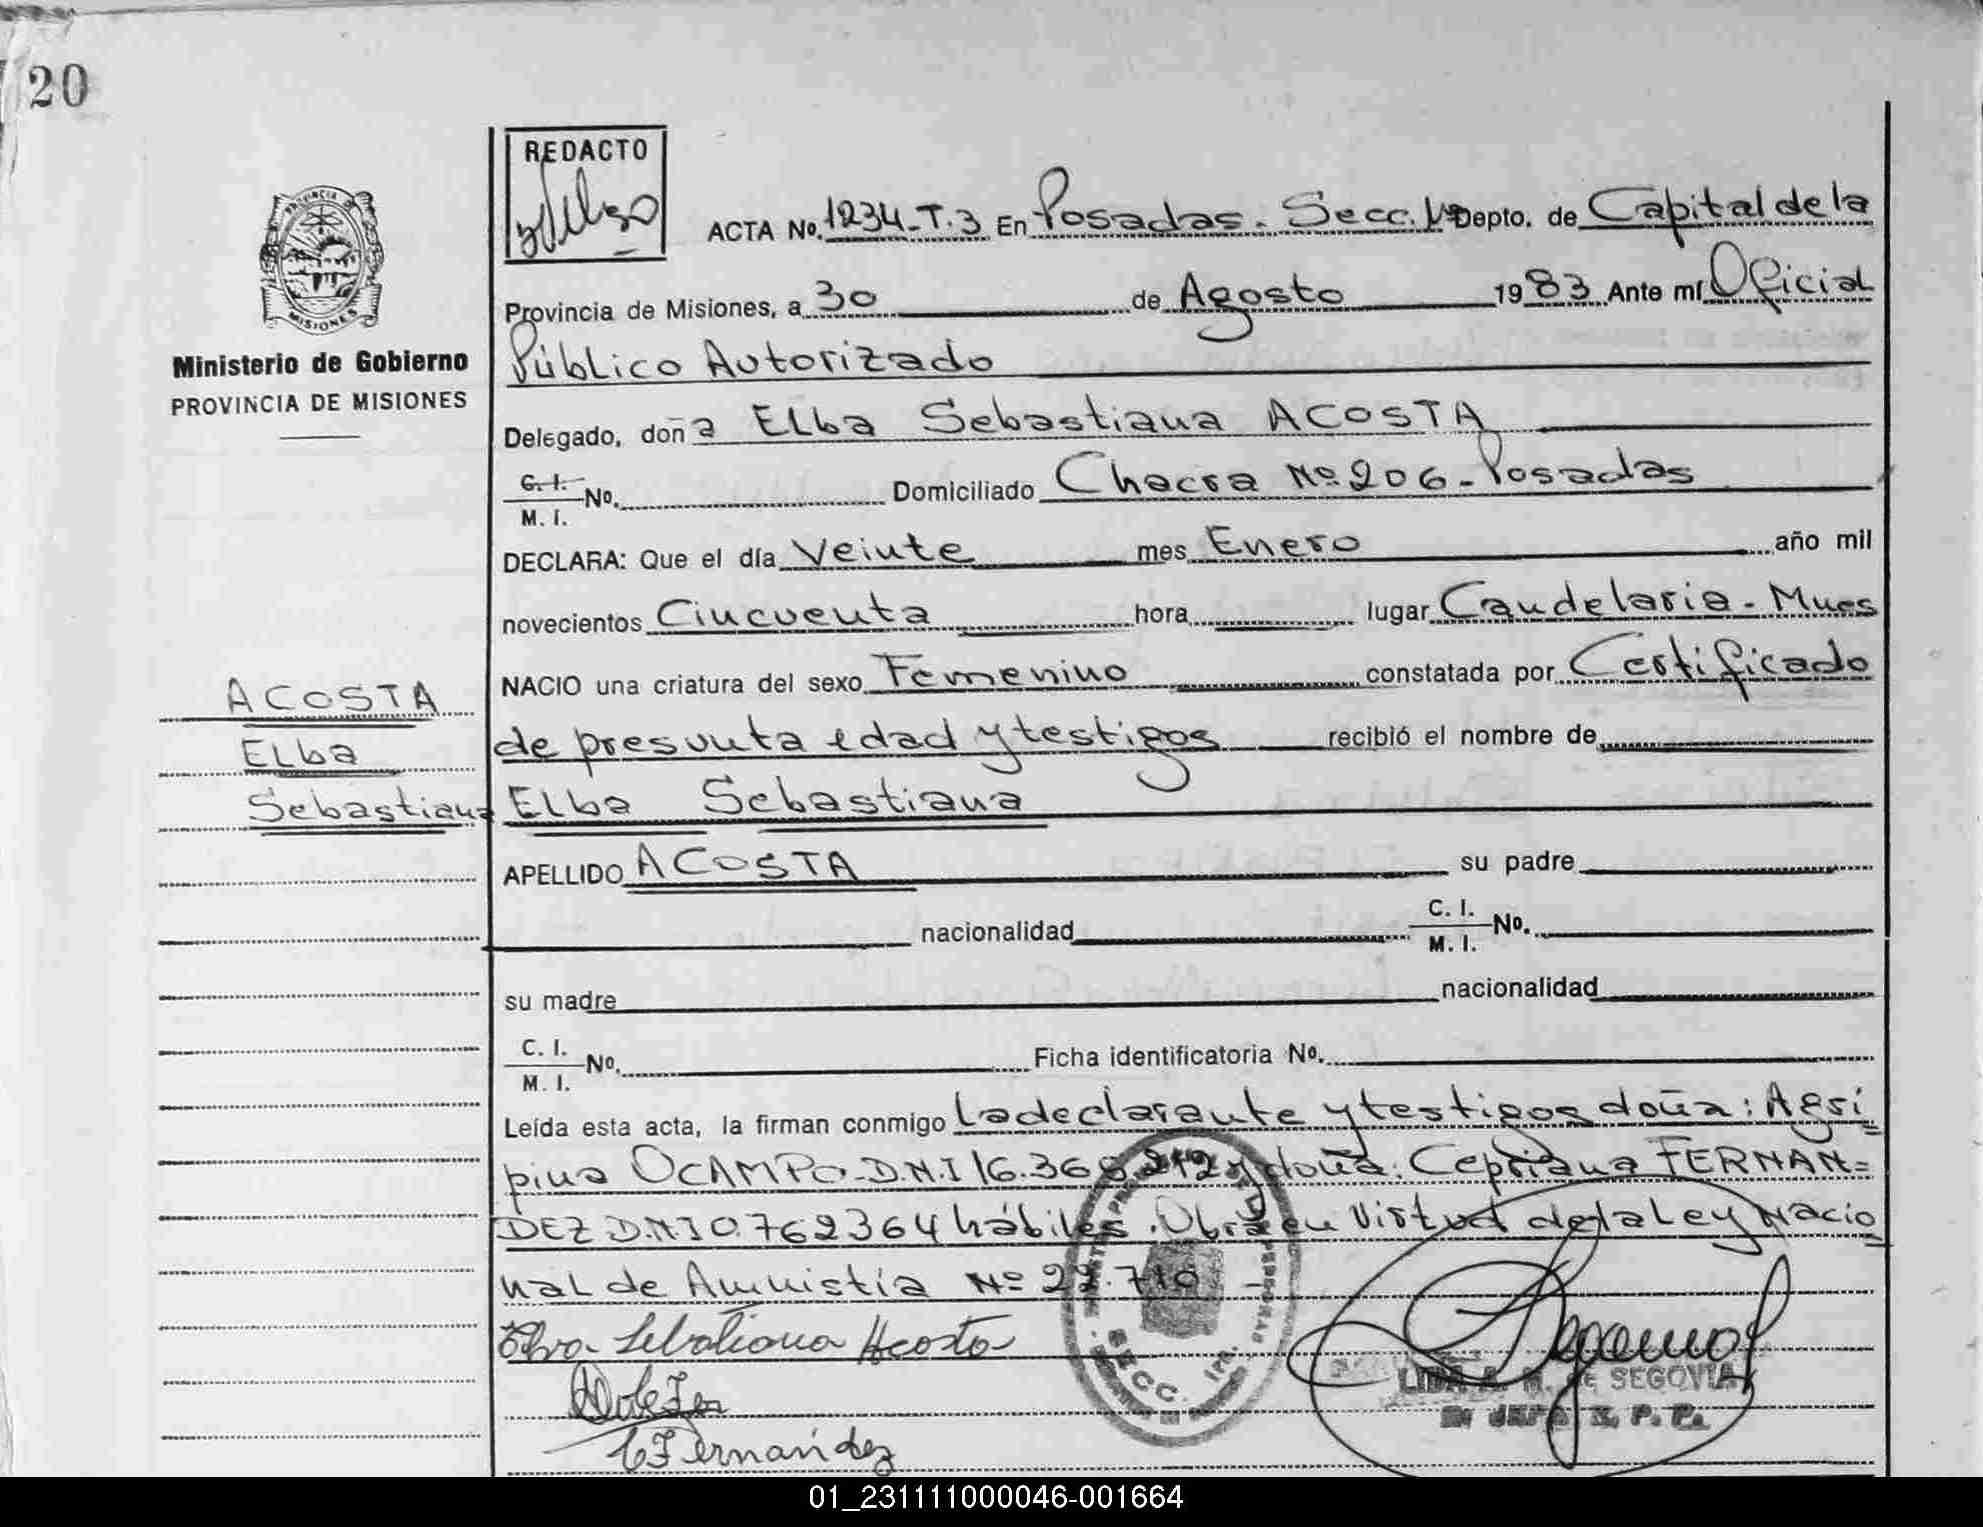 20
REDACTO
PROVINCIA DE
MISIONES
Ministerio de Gobierno
PROVINCIA DE MISIONES
ACTA No. 1234-T.3 En Posadas. Secc. 1ª Depto. de Capital de la
Provincia de Misiones, a 30 de Agosto 1983 Ante mí Oficial
Público Autorizado
Delegado, doña Elba Sebastiana ACOSTA
C. I. M. I. No. Domiciliado Chacra Nº 206 - Posadas
DECLARA: Que el día Veinte mes Enero año mil
novecientos Cincuenta hora lugar Candelaria - Mnes
NACIO una criatura del sexo Femenino constatada por Certificado
de presunta edad y testigos recibió el nombre de
Elba Sebastiana
APELLIDO ACOSTA su padre
nacionalidad C. I. M. I. No.
su madre nacionalidad
C. I. M. I. No. Ficha identificatoria No.
Leída esta acta, la firman conmigo La declarante y testigos doña: Agri
pina OCAMPO - D.N.I 16.365.212 y doña: Cepriana FERNAN=
DEZ D.N.I 0.762364 hábiles. Obra en Virtud de la Ley Nacio
nal de Amnistía Nº 22.710 -
Elva Sebatiana Acosta
C Fernandez
ACOSTA
Elba
Sebastiana
SECC. 1ra.
LIDIA A. M. de SEGOVIA
JEFE R. P. P.
01_231111000046-001664